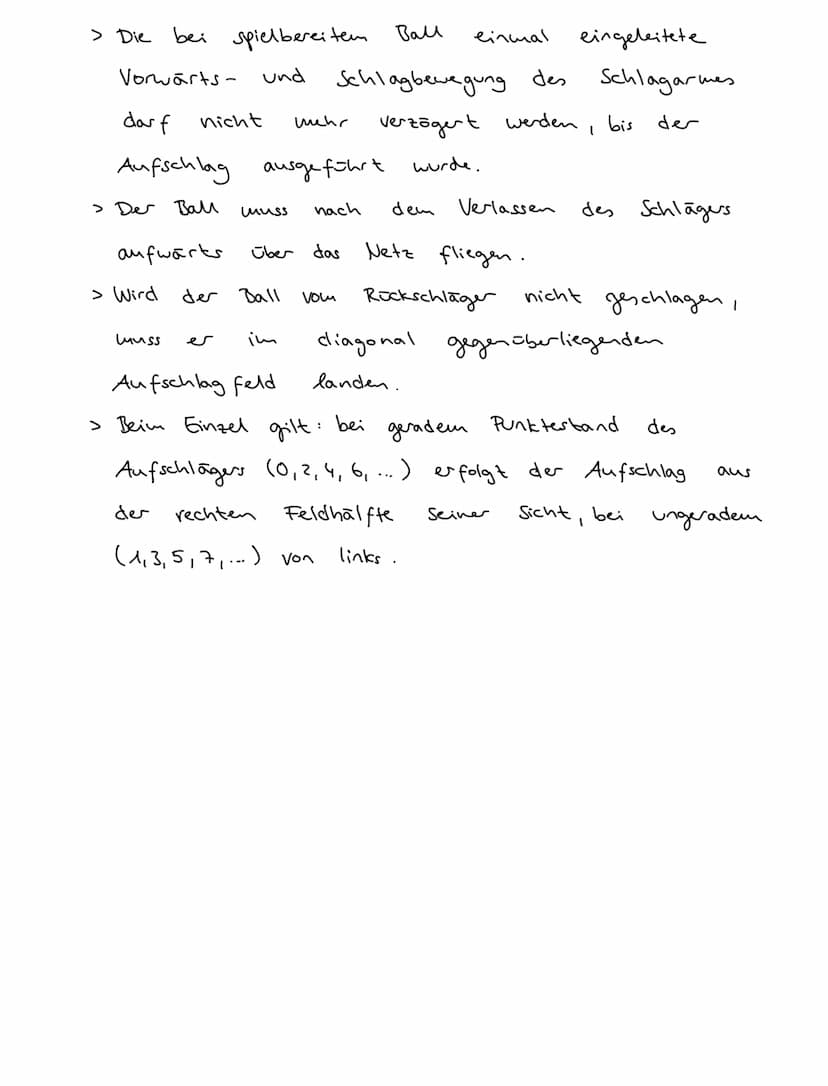 > Die bei spielbereitem Ball einmal eingeleitete
Vorwärts- und Schlagbewegung des Schlagarmes
darf nicht mehr verzögert werden, bis der
Aufschlag ausgeführt wurde.
> Der Ball muss nach dem Verlassen des Schlägers
aufwärts über das Netz fliegen.
> Wird der Ball vom Rückschläger nicht geschlagen,
muss er im diagonal gegenüberliegenden
Aufschlagfeld landen.
> Beim Einzel gilt: bei geradem Punktestand des
Aufschlägers (0, 2, 4, 6, ...) erfolgt der Aufschlag aus
der rechten Feldhälfte seiner Sicht, bei ungeradem
(1, 3, 5, 7, ...) von links.